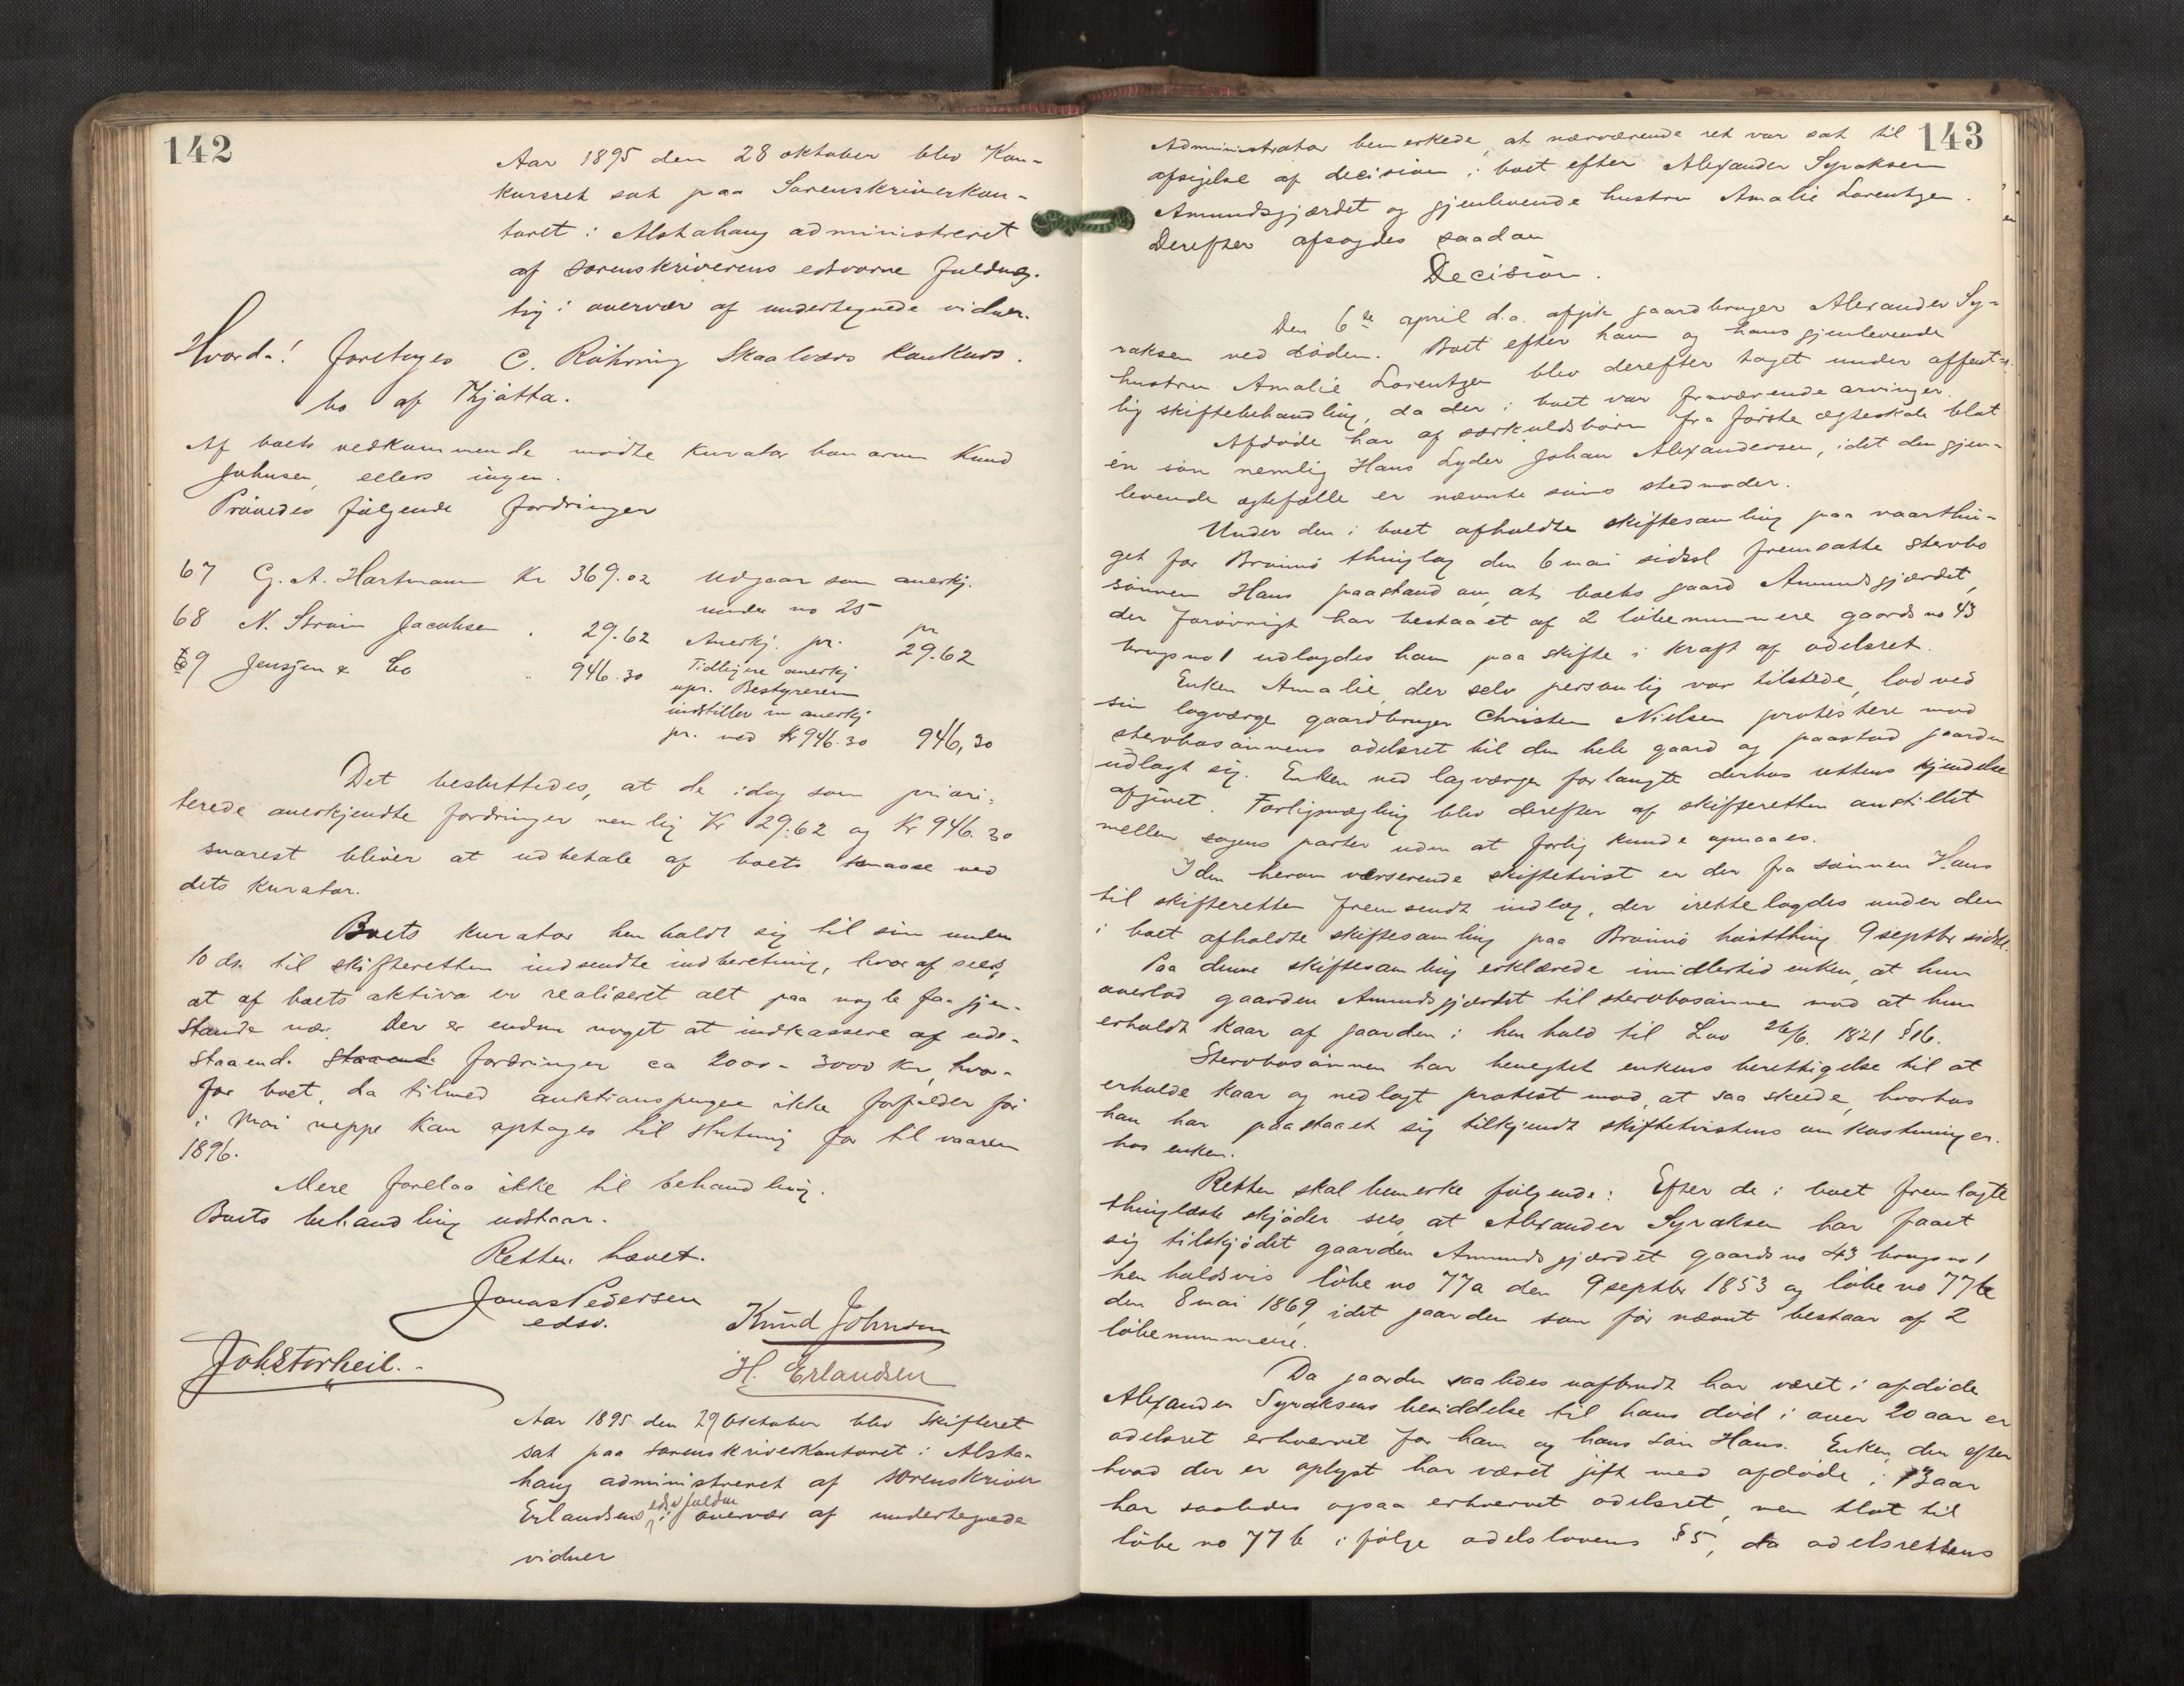 142
Aar 1895 den 28 oktober blev Kon-
kursret sat paa Sorenskriverkon-
toret i Alstahaug administreret
af sorenskriverens edsvorne fuldmæg-
tig i overvær af undertegnede vidner.
Hvorda! foretoges C. Röhring Skaalvær's konkurs
bo af Tjøtta.
Af boets vedkommende mødte kurator Knud
Johnsen, ellers ingen.
Prøvedes følgende fordringer
67 G. A. Hartmann Kr 369.02 udgaar som anerkj.
under no 25
68 N. Strøm Jacobsen . 29.62 Anerkj. pr. pr 29.62
69 Jensjen & Co " 946.30 Tidligere anerkj
upr. Bestyreren
indstiller nu anerkj
pr. med Kr 946.30 946,30
Det besluttedes, at de idag som priori-
terede anerkjendte fordringer nemlig Kr 29.62 og Kr 946.30
snarest bliver at udbetale af boets masse ved
dets kurator.
Boets kurator henholdt sig til sin under
10 ds. til skifteretten indsendte indberetning, hvoraf sees,
at af boets aktiva er realiseret alt paa nogle faa gjen-
stande nær. Der er endnu noget at indkassere af ude-
staaende staaende fordringer ca 2000 - 3000 Kr, hvor-
for boet, da tilmed auktionspengene ikke forfalder før
i Mai neppe kan optages til slutning før til vaaren
1896.
Mere forelaa ikke til behandling.
Boets behandling udstaar.
Retten hævet.
Jonas Pedersen
edsv.
Knud Johnsen
Joh Storheil.
H. Erlandsen
Aar 1895 den 29 Oktober blev Skifteret
sat paa sorenskriverkontoret i Alsta-
haug administreret af sorenskriver
Erlandsens edsv fuldm i overvær af undertegnede
vidner
143
Administrator bemerkede, at nærværende ret var sat til
afsigelse af decision i boet efter Alexander Syraksen
Amundsgjærdet og gjenlevende hustru Amalie Lorentzen.
Derefter afsagdes saadan
Decision.
Den 6te april d.a. afgik gaardbruger Alexander Sy-
raksen ved døden. Boet efter ham og hans gjenlevende
hustru Amalie Lorentzen blev derefter taget under offent-
lig skiftebehandling, da der i boet var fraværende arvinger.
Afdøde har af særkuldsbørn fra første ægteskab blot
én søn nemlig Hans Lyder Johan Alexandersen, idet den gjen-
levende ægtefælle er nævnte søns stedmoder.
Under den i boet afholdte skiftesamling paa vaarthin-
get for Brønnø thinglag den 6 mai sidstl fremsatte stervbo
sønnen Hans paastand om, at boets gaard Amundsgjærdet,
der forøvrigt har bestaaet af 2 løbenummere gaards no 43
brugsno 1 udlagdes ham paa skifte i kraft af odelsret.
Enken Amalie, der selv personlig var tilstede, lod ved
sin lagværge gaardbruger Christen Nielsen protestere mod
stervbosønnens odelsret til den hele gaard og paastod gaarden
udlagt sig. Enken ved lagværge forlangte derhos rettens kjendelse
afgivet. Forligsmægling blev derefter af skifteretten anstillet
mellem sagens parter uden at forlig kunde opnaaes.
I den herom verserende skiftetvist er der fra sønnen Hans
til skifteretten fremsendt indlæg, der irettelagdes under den
i boet afholdte skiftesamling paa Brønnø høstthing 9 septbr sidstl.
Paa denne skiftesamling erklærede imidlertid enken, at hun
overlod gaarden Amundsgjærdet til stervbosønnen mod at hun
erholdt kaar af gaarden i henhold til Lov 26/6. 1821 §16.
Stervbosønnen har benegtet enkens berettigelse til at
erholde kaar og nedlagt protest mod, at saa skeede, hvorhos
han har paastaaet sig tilkjendt skiftetvistens omkostninger
hos enken.
Retten skal bemerke følgende: Efter de i boet fremlagte
thinglæste skjøder sees, at Alexander Syraksen har faaet
sig tilskjødet gaarden Amundsgjærdet gaards no 43 brugsno 1
henholdsvis løbe no 77a den 9 septbr 1853 og løbe no 77b
den 8 mai 1869, idet gaarden som før nævnt bestaar af 2
løbenummere.
Da gaarden saaledes uafbrudt har været i afdøde
Alexander Syraksens besiddelse til hans død i over 20 aar er
odelsret erhvervet for ham og hans søn Hans. Enken, der efter
hvad der er oplyst har været gift med afdøde i 13 aar
har saaledes ogsaa erhvervet odelsret, men blot til
løbe no 77b ifølge odelslovens §5, da odelsrettens